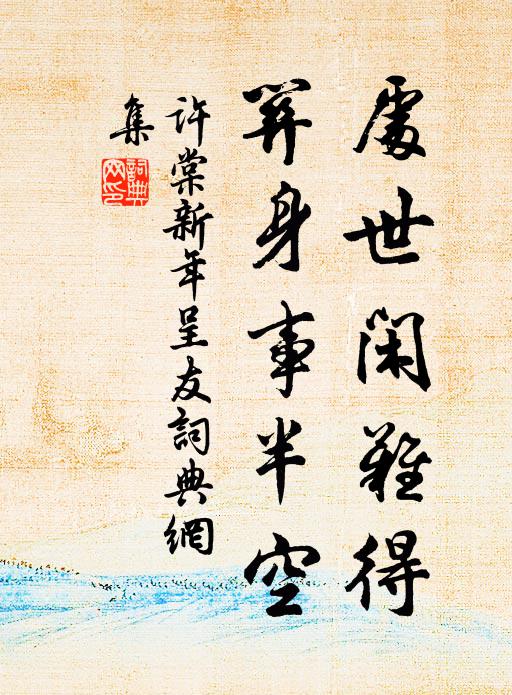 處世閑難得
關身事半空
許棠新年呈友詞典網
集
詞典
网印